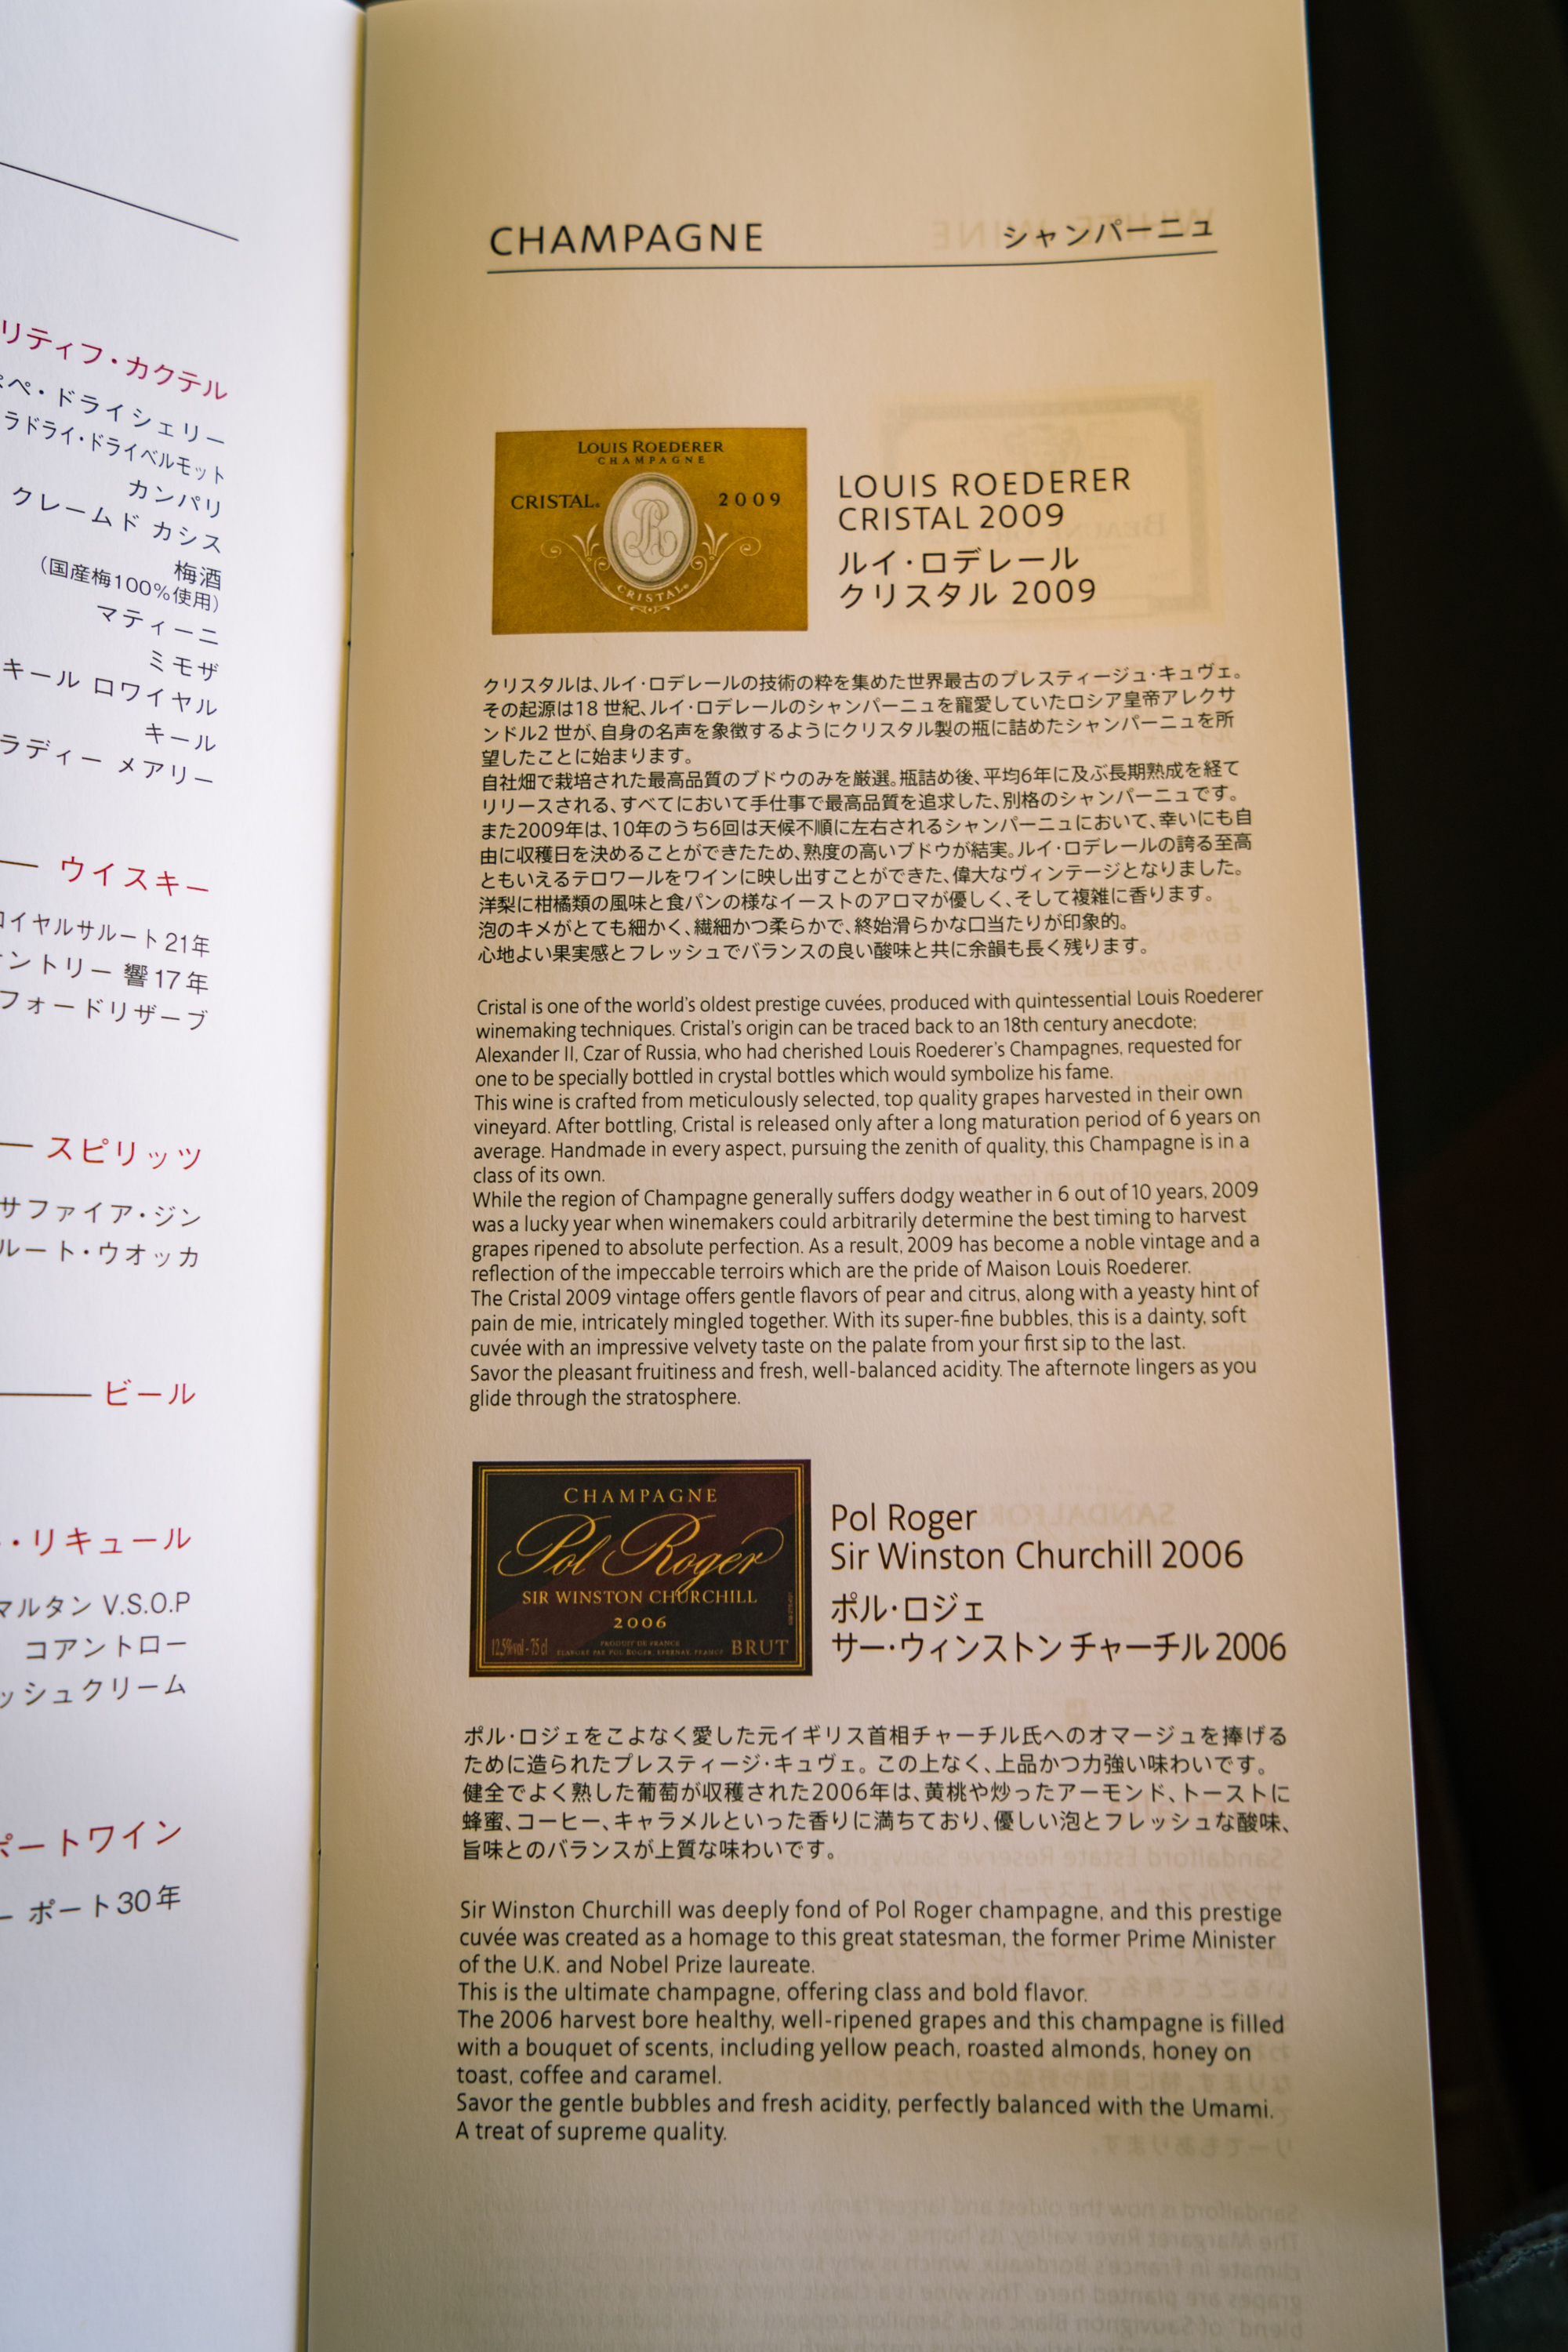 リティフ・カクテル
ペ・ドライシェリー
ラドライ・ドライベルモット
カンパリ
クレームド カシス
梅酒
(国産梅100%使用)
マティーニ
ミモザ
キール ロワイヤル
キール
ラディー メアリー
ウイスキー
ロイヤルサルート 21年
ントリー 響 17年
フォードリザーブ
スピリッツ
サファイア・ジン
ルート・ウオッカ
ビール
・リキュール
マルタン V.S.O.P
コアントロー
ッシュクリーム
ポートワイン
ー ポート30年
CHAMPAGNE シャンパーニュ
LOUIS ROEDERER
CHAMPAGNE
CRISTAL 2009
CRISTAL
LOUIS ROEDERER
CRISTAL 2009
ルイ・ロデレール
クリスタル 2009
クリスタルは、ルイ・ロデレールの技術の粋を集めた世界最古のプレスティージュ・キュヴェ。
その起源は18 世紀、ルイ・ロデレールのシャンパーニュを寵愛していたロシア皇帝アレクサ
ンドル2 世が、自身の名声を象徴するようにクリスタル製の瓶に詰めたシャンパーニュを所
望したことに始まります。
自社畑で栽培された最高品質のブドウのみを厳選。瓶詰め後、平均6年に及ぶ長期熟成を経て
リリースされる、すべてにおいて手仕事で最高品質を追求した、別格のシャンパーニュです。
また2009年は、10年のうち6回は天候不順に左右されるシャンパーニュにおいて、幸いにも自
由に収穫日を決めることができたため、熟度の高いブドウが結実。ルイ・ロデレールの誇る至高
ともいえるテロワールをワインに映し出すことができた、偉大なヴィンテージとなりました。
洋梨に柑橘類の風味と食パンの様なイーストのアロマが優しく、そして複雑に香ります。
泡のキメがとても細かく、繊細かつ柔らかで、終始滑らかな口当たりが印象的。
心地よい果実感とフレッシュでバランスの良い酸味と共に余韻も長く残ります。
Cristal is one of the world's oldest prestige cuvées, produced with quintessential Louis Roederer
winemaking techniques. Cristal's origin can be traced back to an 18th century anecdote;
Alexander II, Czar of Russia, who had cherished Louis Roederer's Champagnes, requested for
one to be specially bottled in crystal bottles which would symbolize his fame.
This wine is crafted from meticulously selected, top quality grapes harvested in their own
vineyard. After bottling, Cristal is released only after a long maturation period of 6 years on
average. Handmade in every aspect, pursuing the zenith of quality, this Champagne is in a
class of its own.
While the region of Champagne generally suffers dodgy weather in 6 out of 10 years, 2009
was a lucky year when winemakers could arbitrarily determine the best timing to harvest
grapes ripened to absolute perfection. As a result, 2009 has become a noble vintage and a
reflection of the impeccable terroirs which are the pride of Maison Louis Roederer.
The Cristal 2009 vintage offers gentle flavors of pear and citrus, along with a yeasty hint of
pain de mie, intricately mingled together. With its super-fine bubbles, this is a dainty, soft
cuvée with an impressive velvety taste on the palate from your first sip to the last.
Savor the pleasant fruitiness and fresh, well-balanced acidity. The afternote lingers as you
glide through the stratosphere.
CHAMPAGNE
Pol Roger
SIR WINSTON CHURCHILL
2006
12,5%vol - 75 cl PRODUIT DE FRANCE BRUT
ÉLABORÉ PAR POL ROGER, EPERNAY, FRANCE
Pol Roger
Sir Winston Churchill 2006
ポル・ロジェ
サー・ウィンストン チャーチル 2006
ポル・ロジェをこよなく愛した元イギリス首相チャーチル氏へのオマージュを捧げる
ために造られたプレスティージ・キュヴェ。この上なく、上品かつ力強い味わいです。
健全でよく熟した葡萄が収穫された2006年は、黄桃や炒ったアーモンド、トーストに
蜂蜜、コーヒー、キャラメルといった香りに満ちており、優しい泡とフレッシュな酸味、
旨味とのバランスが上質な味わいです。
Sir Winston Churchill was deeply fond of Pol Roger champagne, and this prestige
cuvée was created as a homage to this great statesman, the former Prime Minister
of the U.K. and Nobel Prize laureate.
This is the ultimate champagne, offering class and bold flavor.
The 2006 harvest bore healthy, well-ripened grapes and this champagne is filled
with a bouquet of scents, including yellow peach, roasted almonds, honey on
toast, coffee and caramel.
Savor the gentle bubbles and fresh acidity, perfectly balanced with the Umami.
A treat of supreme quality.